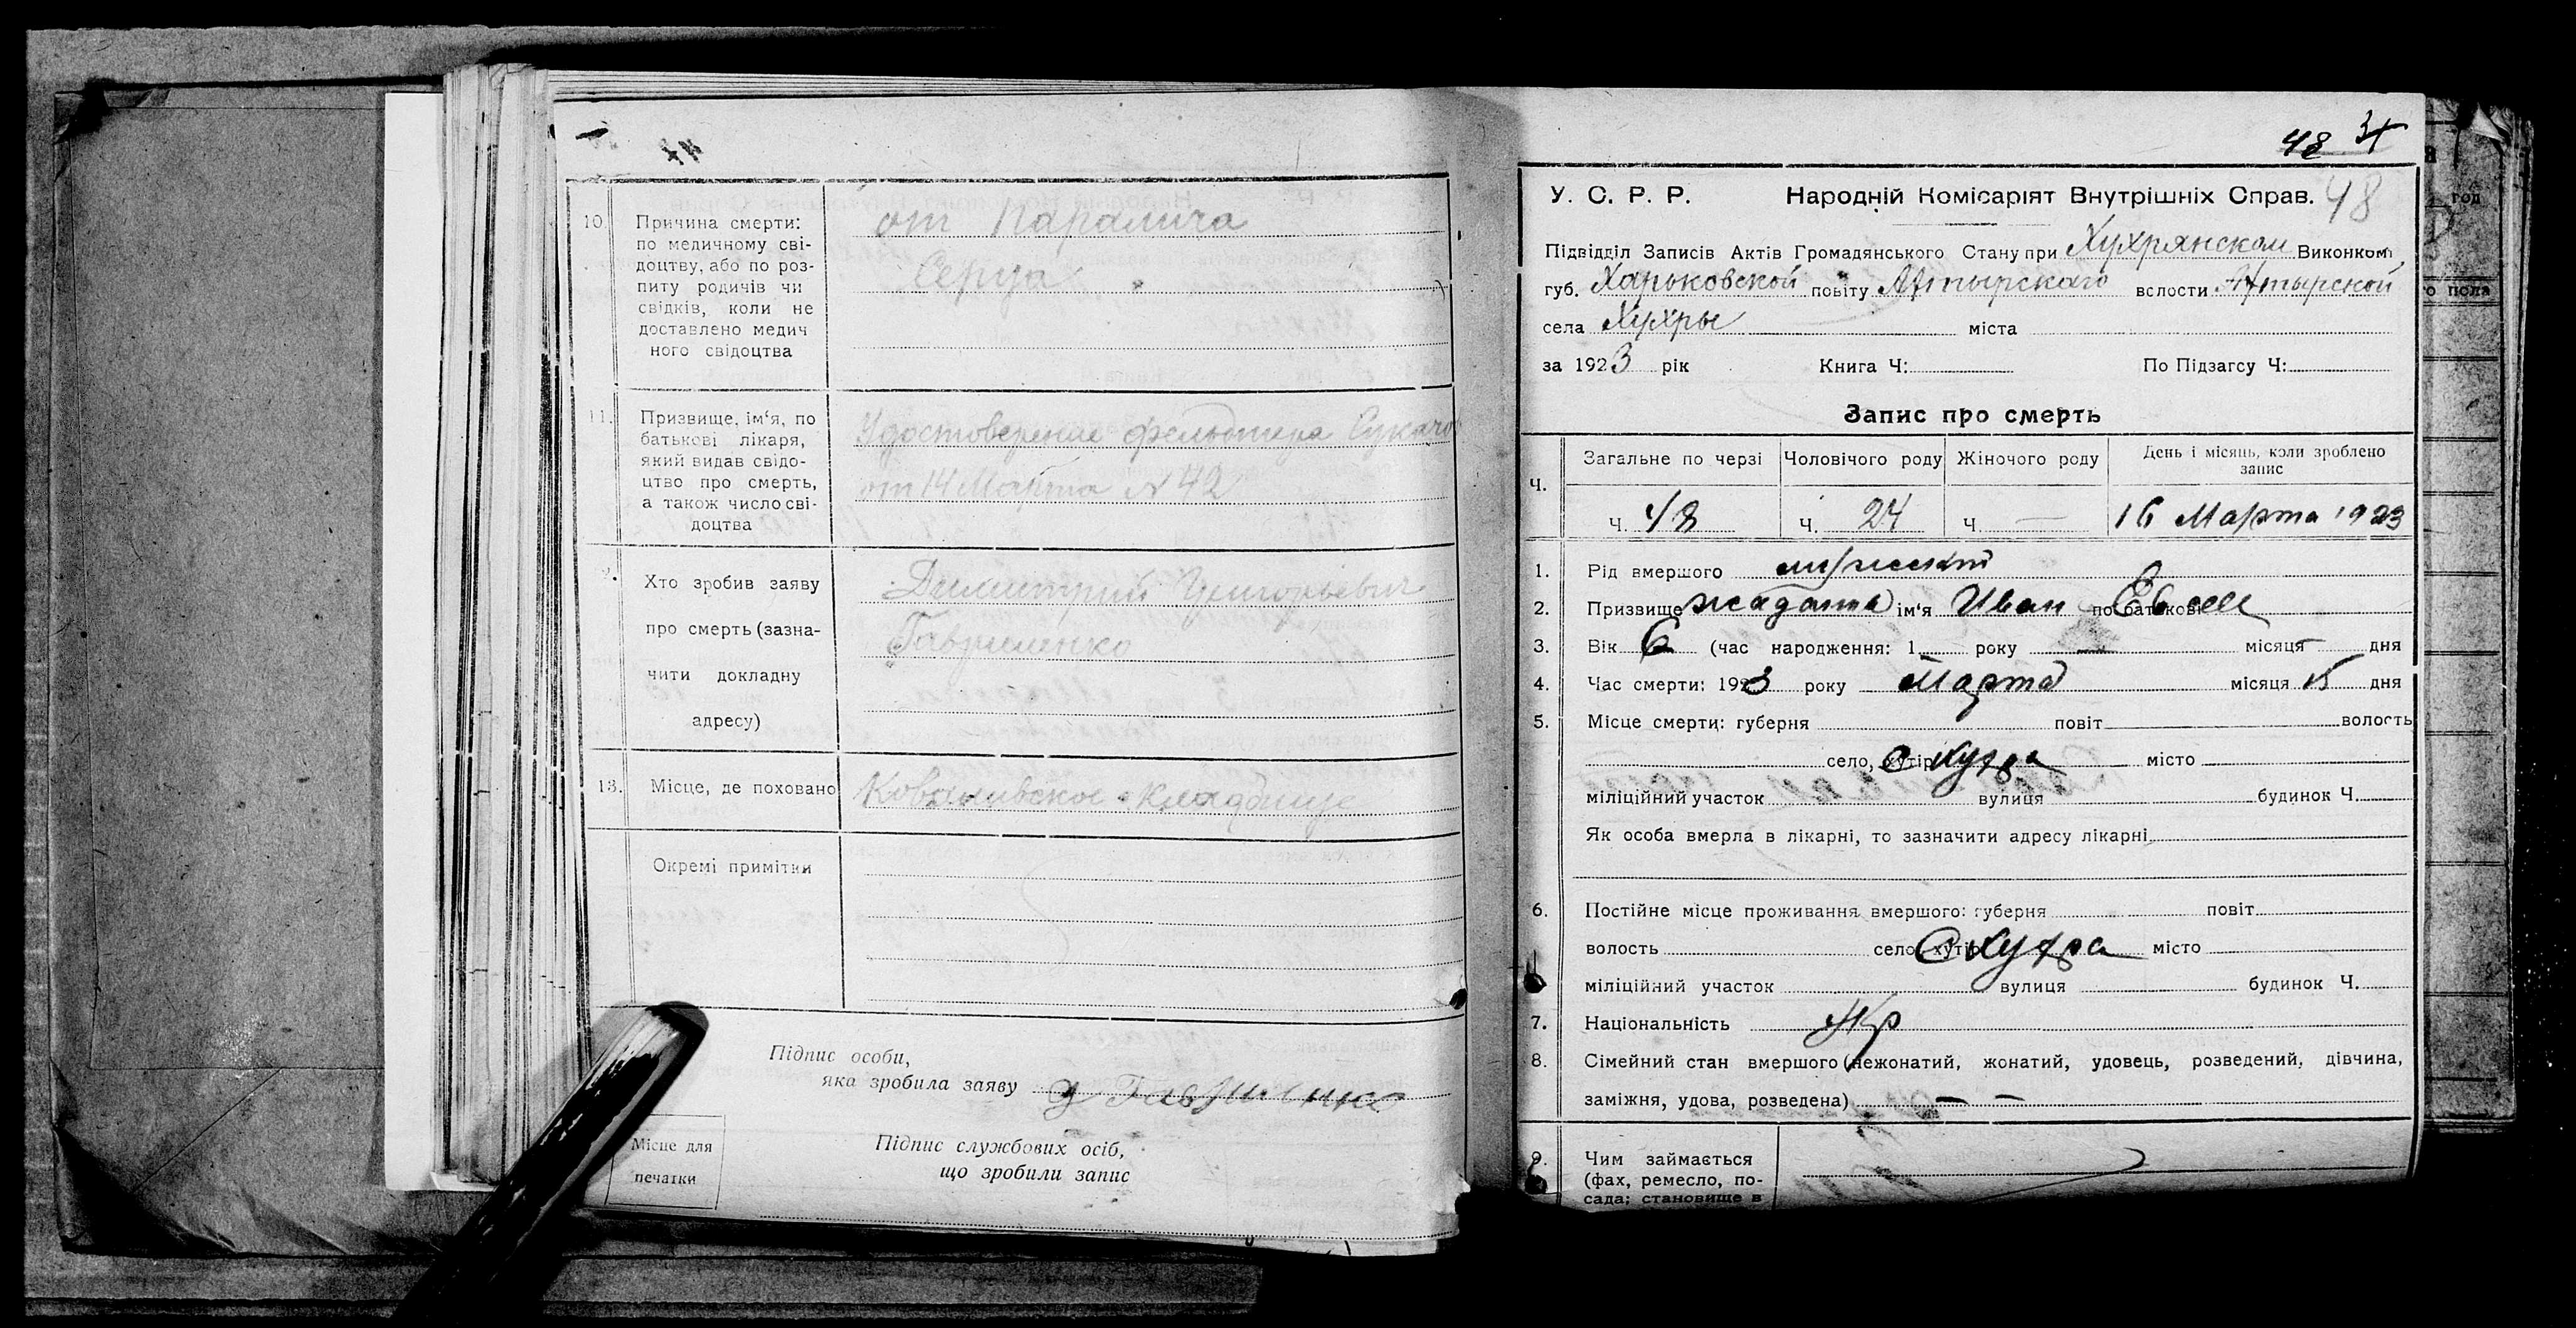 47
10. Причина смерти:
по медичному сві-
доцтву, або по роз-
питу родичів чи
свідків, коли не
доставлено медич
ного свідоцтва
от Паралича
Серца
11. Призвище, ім'я, по
батькові лікаря,
який видав свідо-
цтво про смерть,
а також число сві-
доцтва
Удостоверение фельдшера
от 14 Марта N 42
Хто зробив заяву
про смерть (зазна-
чити докладну
адресу)
Димитрий Григорьевич
Гавриленко
13. Місце, де поховано
кладбище
Окремі примітки
Підпис особи,
яка зробила заяву Гавриленко
Місце для
печатки
Підпис службових осіб,
що зробили запис
48
У. С. Р. Р. Народній Комісаріят Внутрішніх Справ. 48
Підвідділ Записів Актів Громадянського Стану при Хухрянском Виконком
губ. Харьковской повіту Ахтырскаго вслости Ахтырской
села Хухры міста
за 1923 рік Книга Ч: По Підзагсу Ч:
Запис про смерть
Ч. Загальне по черзі Чоловічого роду Жіночого роду День і місяць, коли зроблено
запис
Ч. 48 Ч. 24 Ч — 16 Марта 1923
1. Рід вмершого мужеский
2. Призвище ім'я Иван по батькові Евсее
3. Вік 6 (час народження: 1 року — місяця — дня
4. Час смерти: 1923 року Марта місяця 15 дня
5. Місце смерти: губерня повіт волость
село, хутір с Хухра місто
міліційний участок вулиця будинок Ч.
Як особа вмерла в лікарні, то зазначити адресу лікарні
6. Постійне місце проживання вмершого: губерня повіт
волость село, хутір с Хухра місто
міліційний участок вулиця будинок Ч.
7. Національність Укр
8. Сімейний стан вмершого (нежонатий, жонатий, удовець, розведений, дівчина,
заміжня, удова, розведена) — —
9. Чим займається
(фах, ремесло, по-
сада; становище в